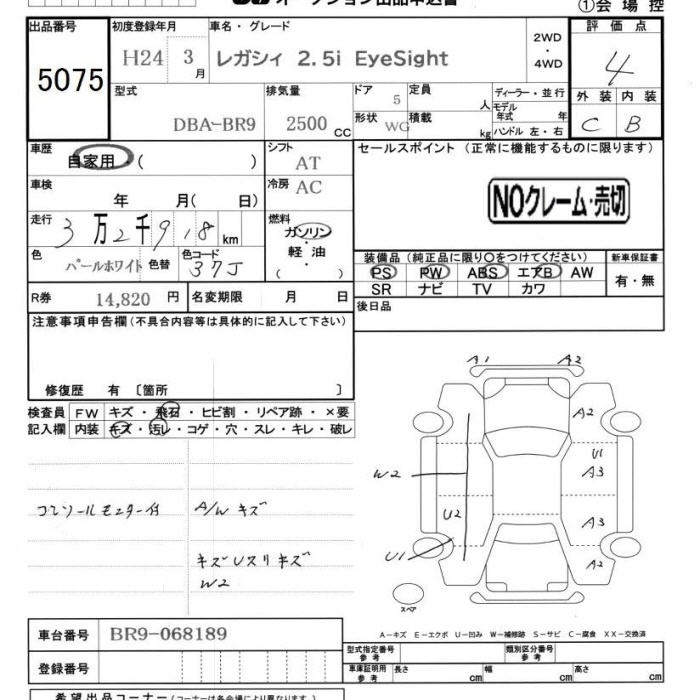 オークション出品申込書
①会場控
出品番号 初度登録年月 車名・グレード 評価点
5075 H24 3月 レガシィ 2.5i EyeSight 2WD・4WD 4
型式 排気量 ドア 定員 ディーラー・並行 外装 内装
DBA-BR9 2500 CC 5 人 モデル年式 年 C B
形状 WG 積載 kg ハンドル 左・右
車歴 自家用・( ) シフト AT セールスポイント (正常に機能するものに限ります)
車検 年 月( 日) 冷房 AC
NOクレーム・売切
走行 3万2千918km 燃料 ガソリン・軽油・( )
色 パールホワイト 色替 色コード 37J
装備品 (純正品に限り○をつけてください) 新車保証書
PS PW ABS エアB AW 有・無
SR ナビ TV カワ
R券 14,820 円 名変期限 月 日 後日品
注意事項申告欄(不具合内容等は具体的に記入して下さい)
修復歴 有 〔箇所 〕
検査員 FW キズ・飛石・ヒビ割・リペア跡・×要
記入欄 内装 キズ・汚レ・コゲ・穴・スレ・キレ・破レ
コンソールモニター付 A/W キズ
キズUスリキズ
W2
A1 A2
A2
U1
W2 A3
U2 A3
U1 A2
スペア
A－キズ E－エクボ U－凹み W－補修跡 S－サビ C－腐食 XX－交換済
車台番号 BR9-068189
型式指定番号 参考 類別区分番号 参考
登録番号
車庫証明用 参考 長さ cm 幅 cm 高さ cm
希望出品コーナー(コーナーは各会場により異なります)